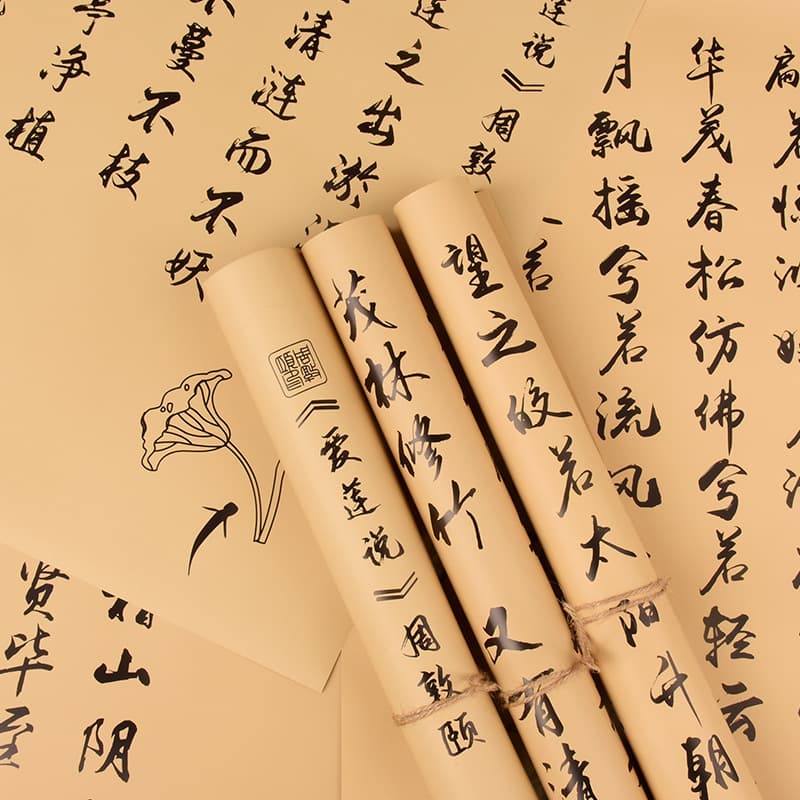 华茂春松仿佛兮若轻云
月飘摇兮若流风
莲说》周敦
莲之出淤
清涟而不妖
不蔓不枝
亭净植
望之皎若太阳升朝
茂林修竹又有清
《爱莲说》周敦颐
山阴
贤毕至